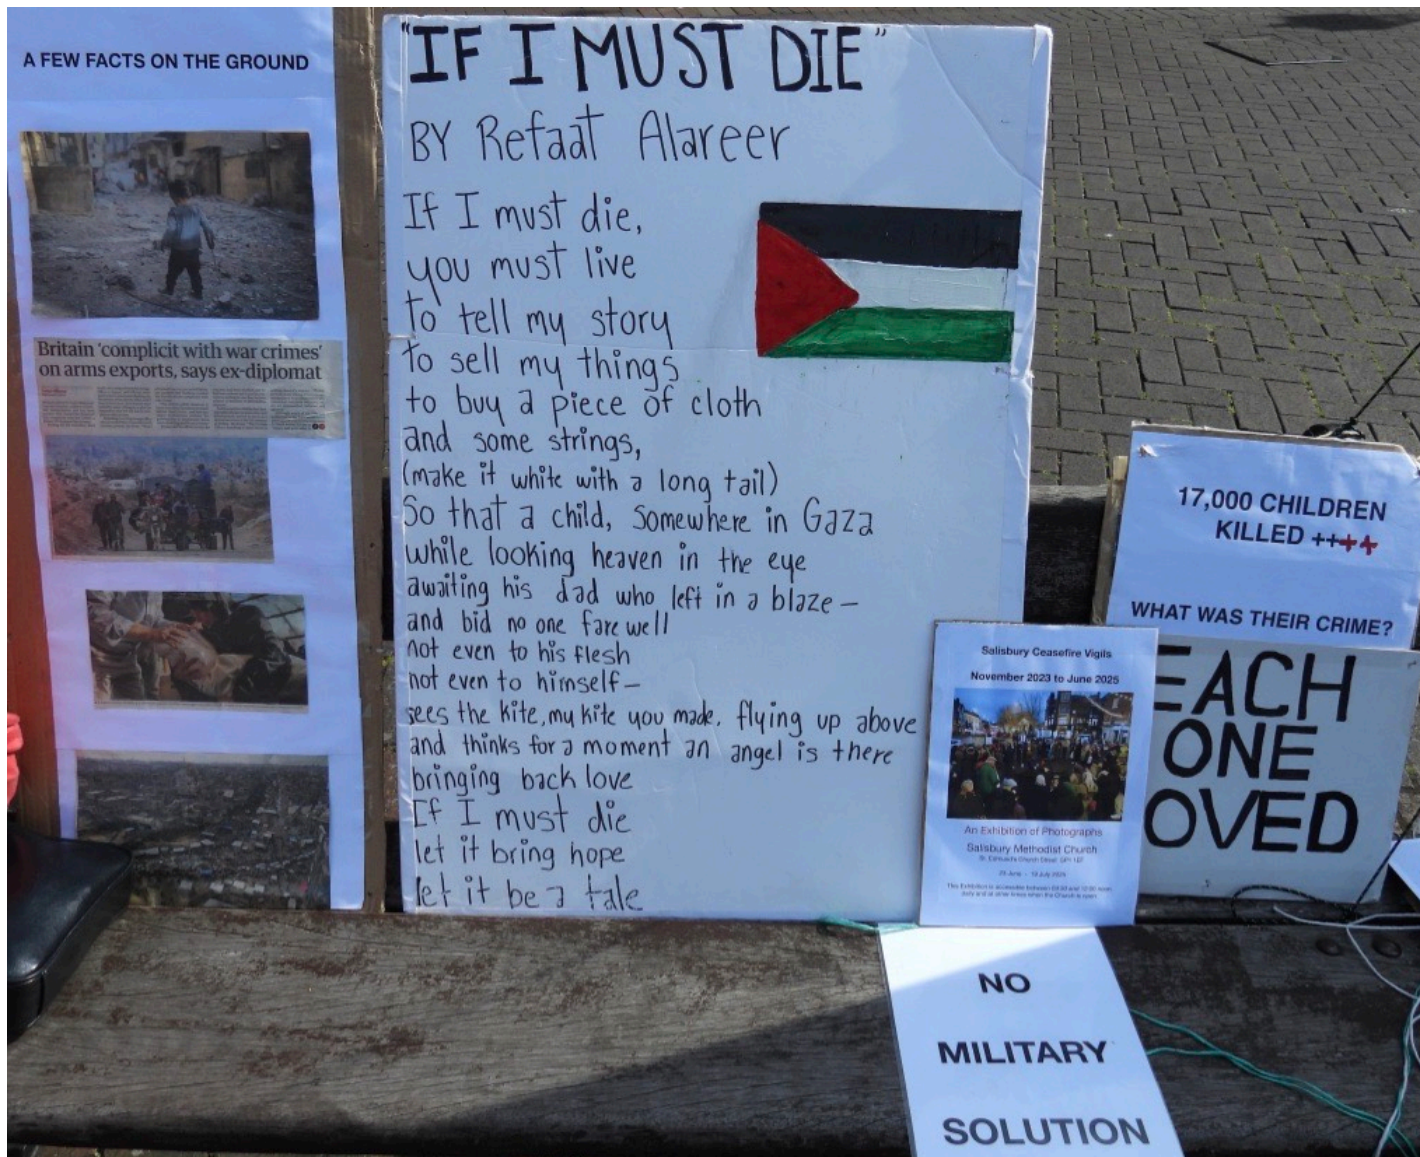 A FEW FACTS ON THE GROUND
Britain 'complicit with war crimes'
on arms exports, says ex-diplomat
"IF I MUST DIE"
BY Refaat Alareer
If I must die,
you must live
to tell my story
to sell my things
to buy a piece of cloth
and some strings,
(make it white with a long tail)
So that a child, somewhere in Gaza
while looking heaven in the eye
awaiting his dad who left in a blaze—
and bid no one farewell
not even to his flesh
not even to himself—
sees the kite, my kite you made, flying up above
and thinks for a moment an angel is there
bringing back love
If I must die
let it bring hope
let it be a tale
17,000 CHILDREN
KILLED ++++
WHAT WAS THEIR CRIME?
EACH
ONE
OVED
Salisbury Ceasefire Vigils
November 2023 to June 2025
An Exhibition of Photographs
Salisbury Methodist Church
St. Edmund's Church Street, SP1 1EF
NO
MILITARY
SOLUTION